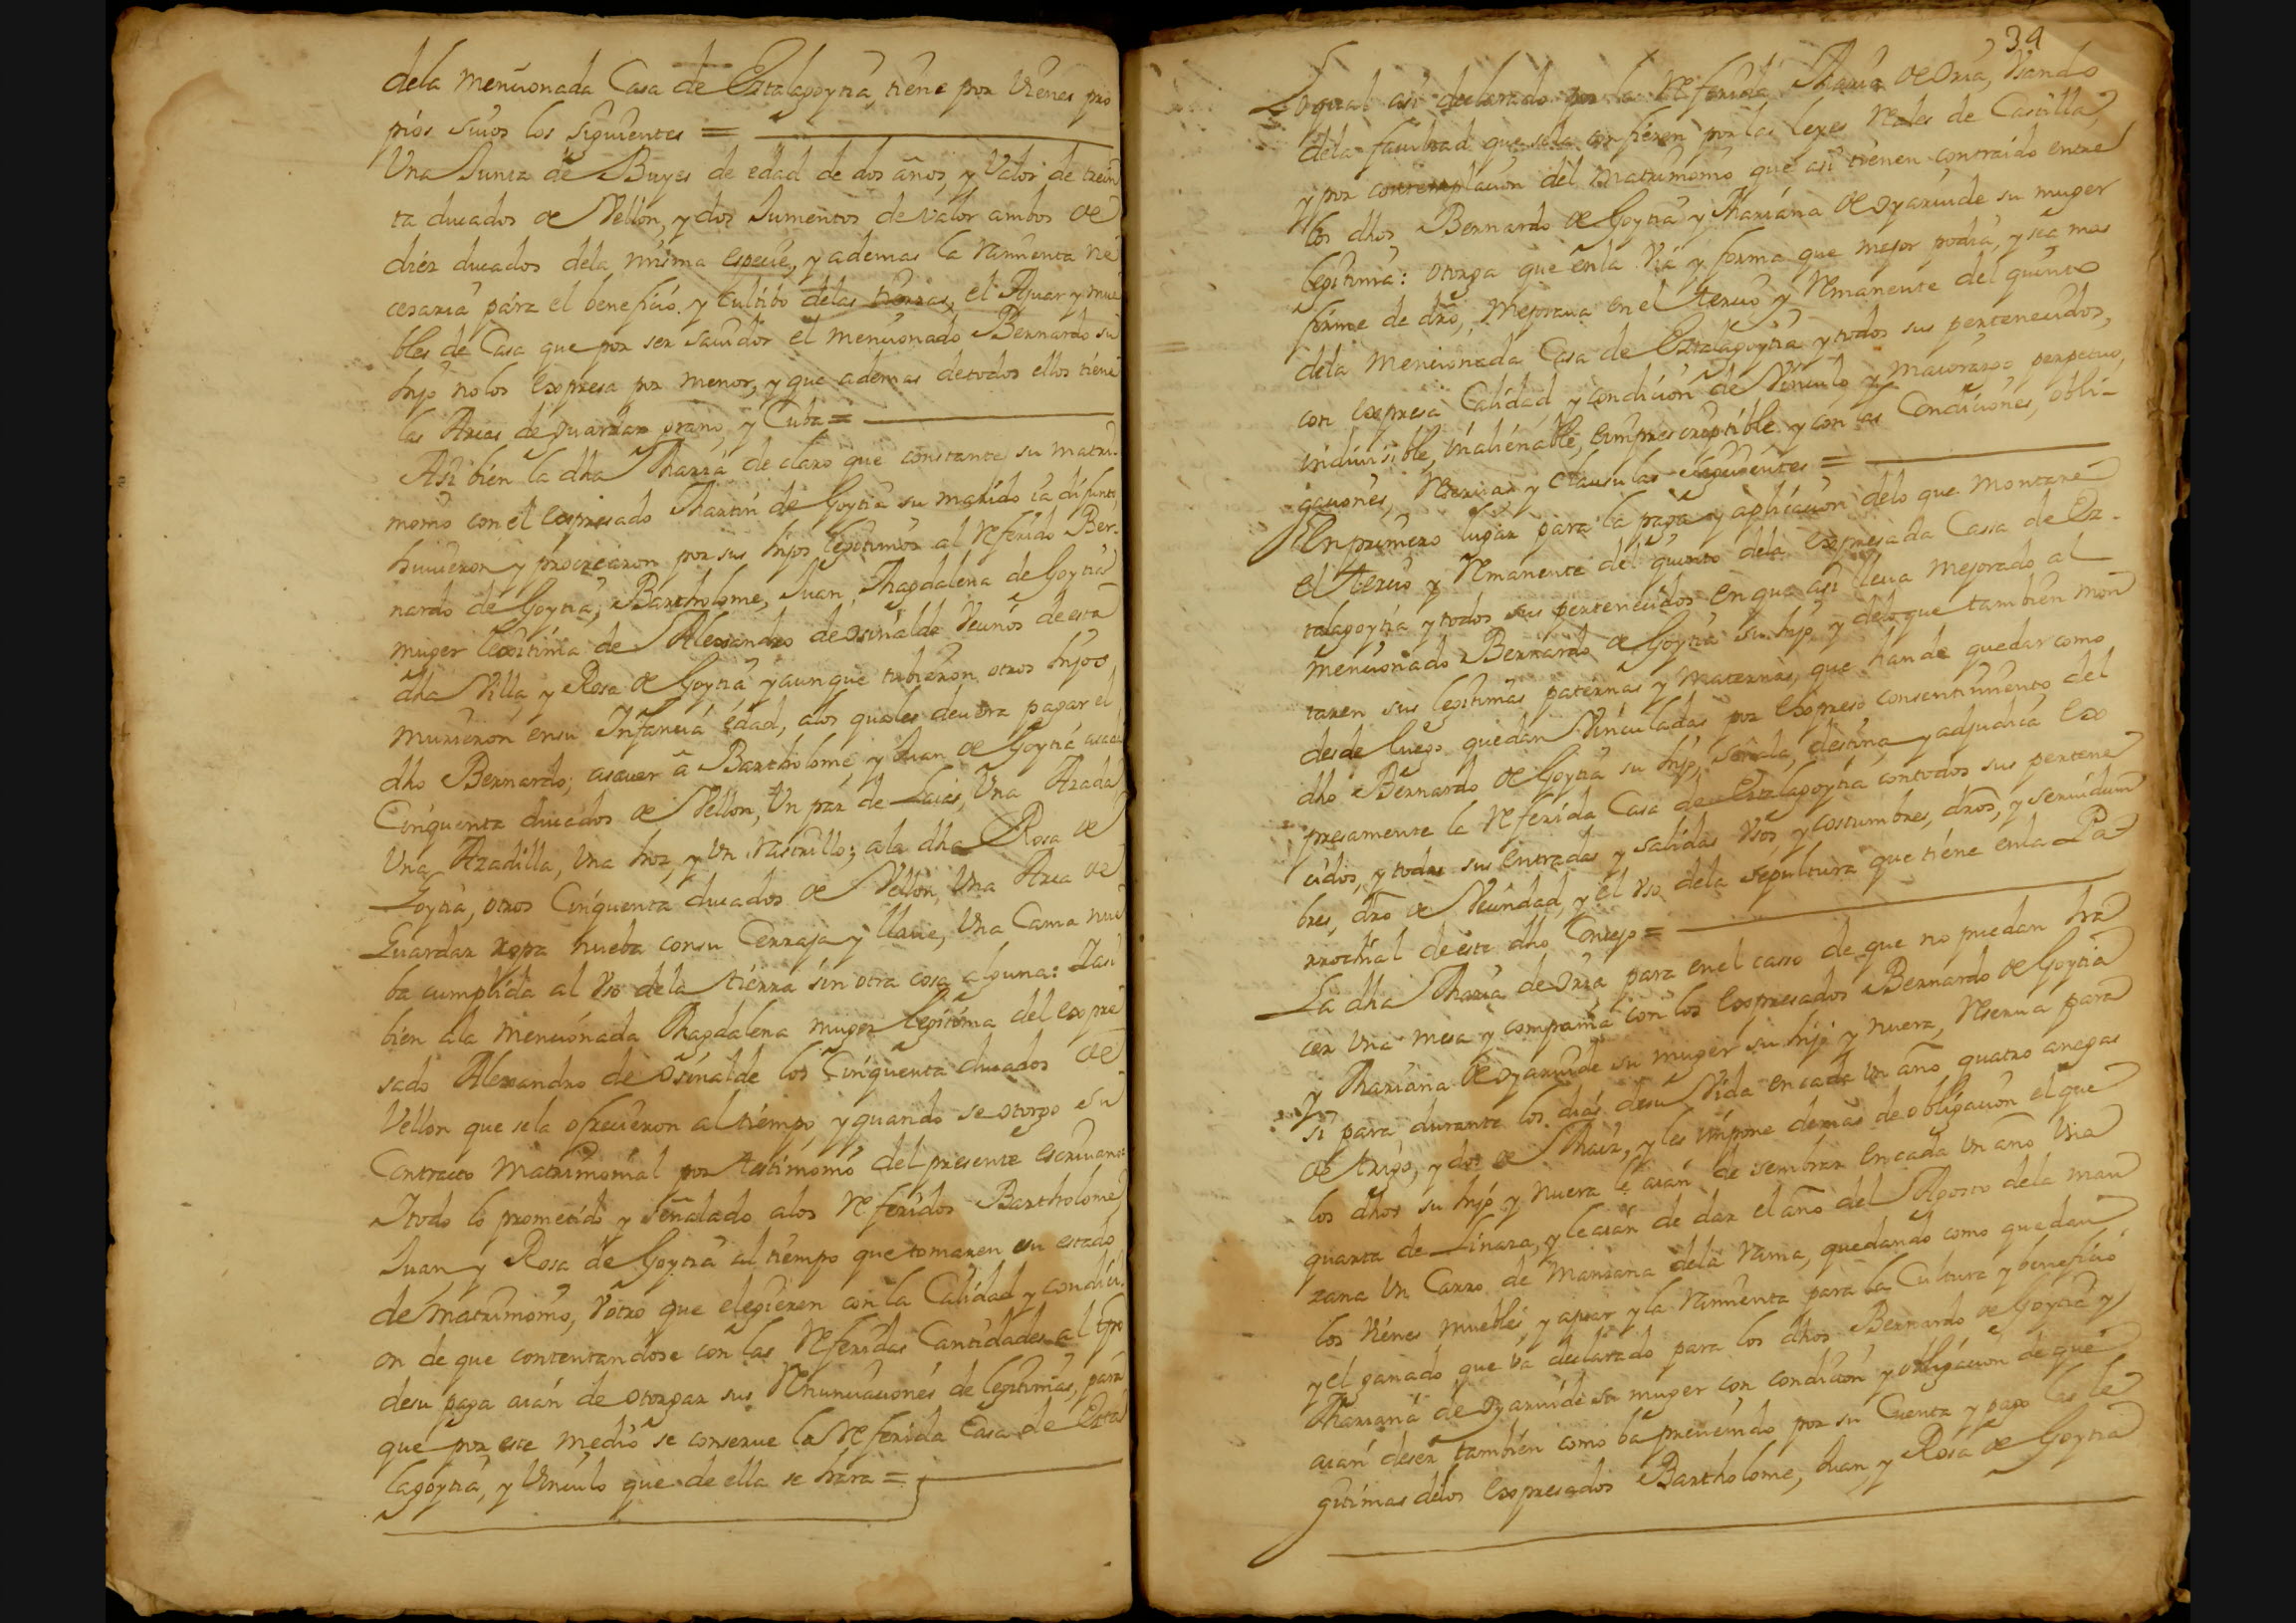 dela mencionada Casa de Estalagoytia, tiene por vienes pro
pios suios los siguientes =
Una Junta de Buyes de edad de dos años, y valor de trein
ta ducados de Vellon, y dos Jumentos de valor ambos de
diez ducados dela misma especie, y ademas la rramienta ne
cesaria para el beneficio y cultibo delas tierras, el Ajuar y mue
bles de Casa que por ser sauidor el mencionado Bernardo su
hijo no los expresa por menor, y que ademas detodos ellos tiene
las Arcas de guardar grano, y Cuba =
Asi bien la dha Maria declaro que constante su matri
monio con el expresado Martin de Goytia su marido ia difunto,
huuieron y procrearon por sus hijos legitimos al referido Ber-
nardo de Goytia, Bartholome, Juan, Magdalena de Goytia
muger lexitima de Alexandro de Osinalde Vecinos de esta
dha Villa, y Rosa de Goytia y aunque tubieron otros hijos
murieron ensu Infancia edad, alos quales deuera pagar el
dho Bernardo; asauer â Bartholome, y Juan de Goytia acada
Cinquenta ducados de Vellon, Un par de Laias, Una Azada
Una Azadilla, Una hoz, y Un rastrillo; ala dha Rosa de
Goytia, otros Cinquenta ducados de Vellon, Una Arca de
Guardar ropa nueba consu Cerraja y llaue, Una Cama nue
ba cumplida al Uso dela tierra sin otra cosa alguna: Iasi
bien ala mencionada Magdalena muger legitima del expre
sado Alexandro de Osinalde los Cinquenta ducados de
Vellon que sela ofrecieron al tiempo, y quando se otorgo su
Contracto Matrimonial por testimonio del presente escriuano
Itodo lo prometido y señalado alos referidos Bartholome,
Juan, y Rosa de Goytia al tiempo que tomaren su estado
de Matrimonio, Votro que elegieren con la Calidad y condici
on de que contentandose con las referidas Cantidades al tpo
desu paga aian de otorgar sus renunciaciones de legitimas, para
que por este medio se conserue la referida Casa de Esta
lagoytia, y Vinculo que de ella se hara =
34
Loqual asi declarado por la referida Maria de Oria, Usando
dela facultad que sela confieren por las leyes reales de Castilla,
y por contemplacion del Matrimonio que asi tienen contraido entre
los dhos Bernardo de Goytia y Mariana de Oyaruide su muger
legitima: otorga que enla Via y forma que mejor podia, y sea mas
firme de dro, Mejoraua en el tercio y remanente del quinto
dela mencionada Casa de Estalagoytia y todos sus pertenecidos,
con expresa Calidad, y condicion de Vinculo y maiorazgo perpetuo,
indiuisible, inalienable, eimprescriptible y con las Condiciones, obli-
gaciones, reseruas y Clausulas siguientes =
Enprimero lugar para la paga y aplicacion delo que montare
el tercio y remanente del quinto dela expresada Casa de Es-
talagoytia y todos sus pertenecidos enque asi lleua mejorado al
mencionado Bernardo de Goytia su hijo, y deloque tambien mon
taren sus legitimas paternas y maternas, que hande quedar como
desde luego quedan Vinculadas por expreso consentimiento del
dho Bernardo de Goytia su hijo, señala, destina, y adjudica ex
presamente la referida Casa de Estalagoytia contodos sus pertene
cidos, y todas sus entradas y salidas Usos y costumbres, dros, y seruidum
bres, dro de Vecindad, y el Uso dela sepultura que tiene enla Pa
rrochial de este dho Concejo =
La dha Maria de Oria para enel casso de que no puedan ha
cer Una mesa y compania con los expresados Bernardo de Goytia
y Mariana de Oyaruide su muger su hijo y nuera, reserua para
si para durante los dias desu Vida encada un año quatro anegas
de trigo, y dos de Maiz, y les impone demas de obligacion el que
los dhos su hijo y nuera le aian de sembrar encada Un año Una
quarta de Linaza, y le aian de dar el año del Agosto dela man
zana Un Carro de Manzana dela rama, quedando como quedan
los vienes muebles, y ajuar y la rramienta para la Cultura y beneficio
y el ganado, que va declarado para los dhos Bernardo de Goytia y
Mariana de Oyaruide su muger con condicion y obligacion de que
aian deser tambien como ba preuenido por su Cuenta y pago las le
gitimas delos expresados Bartholome, Juan, y Rosa de Goytia